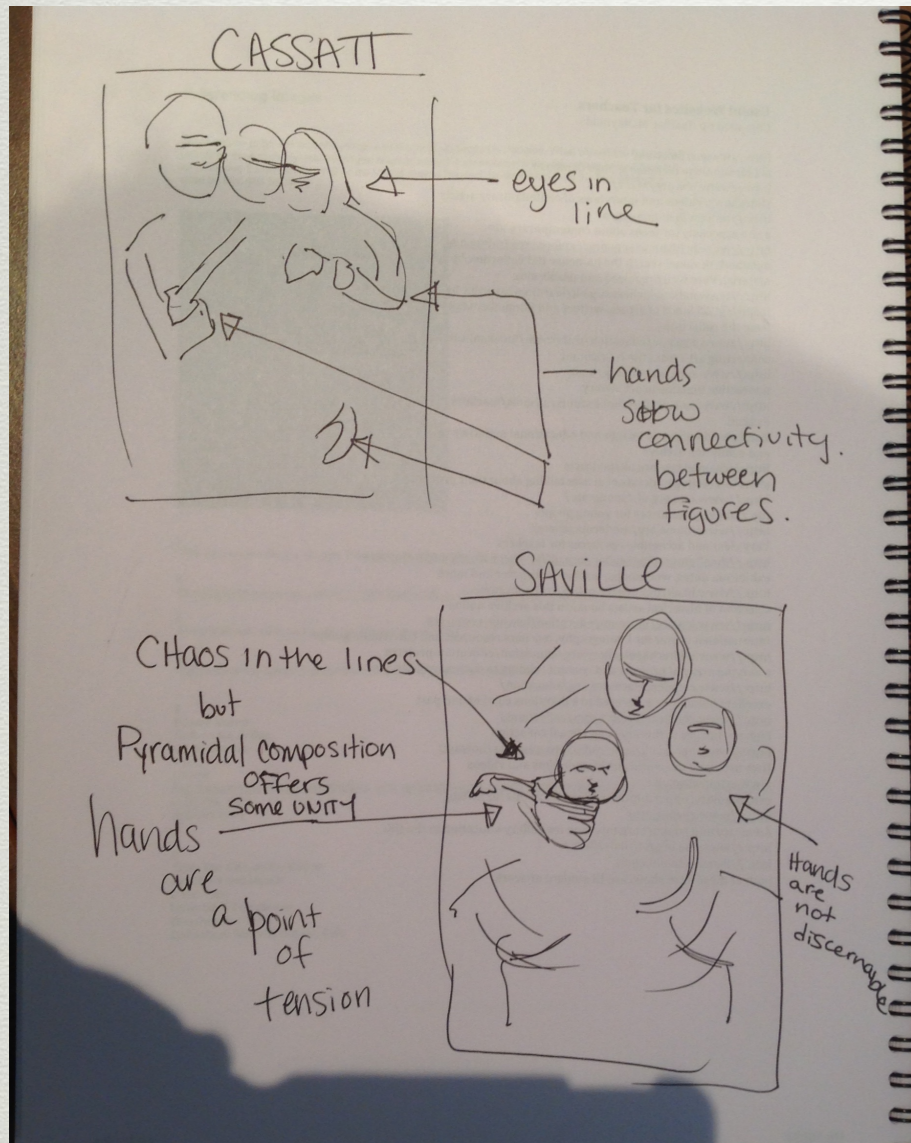 CASSATT
eyes in
line
hands
show
connectivity.
between
figures.
SAVILLE
CHaos in the lines
but
Pyramidal composition
OFFERS
Some UNITY
hands
are
a point
of
tension
Hands
are
not
discernable